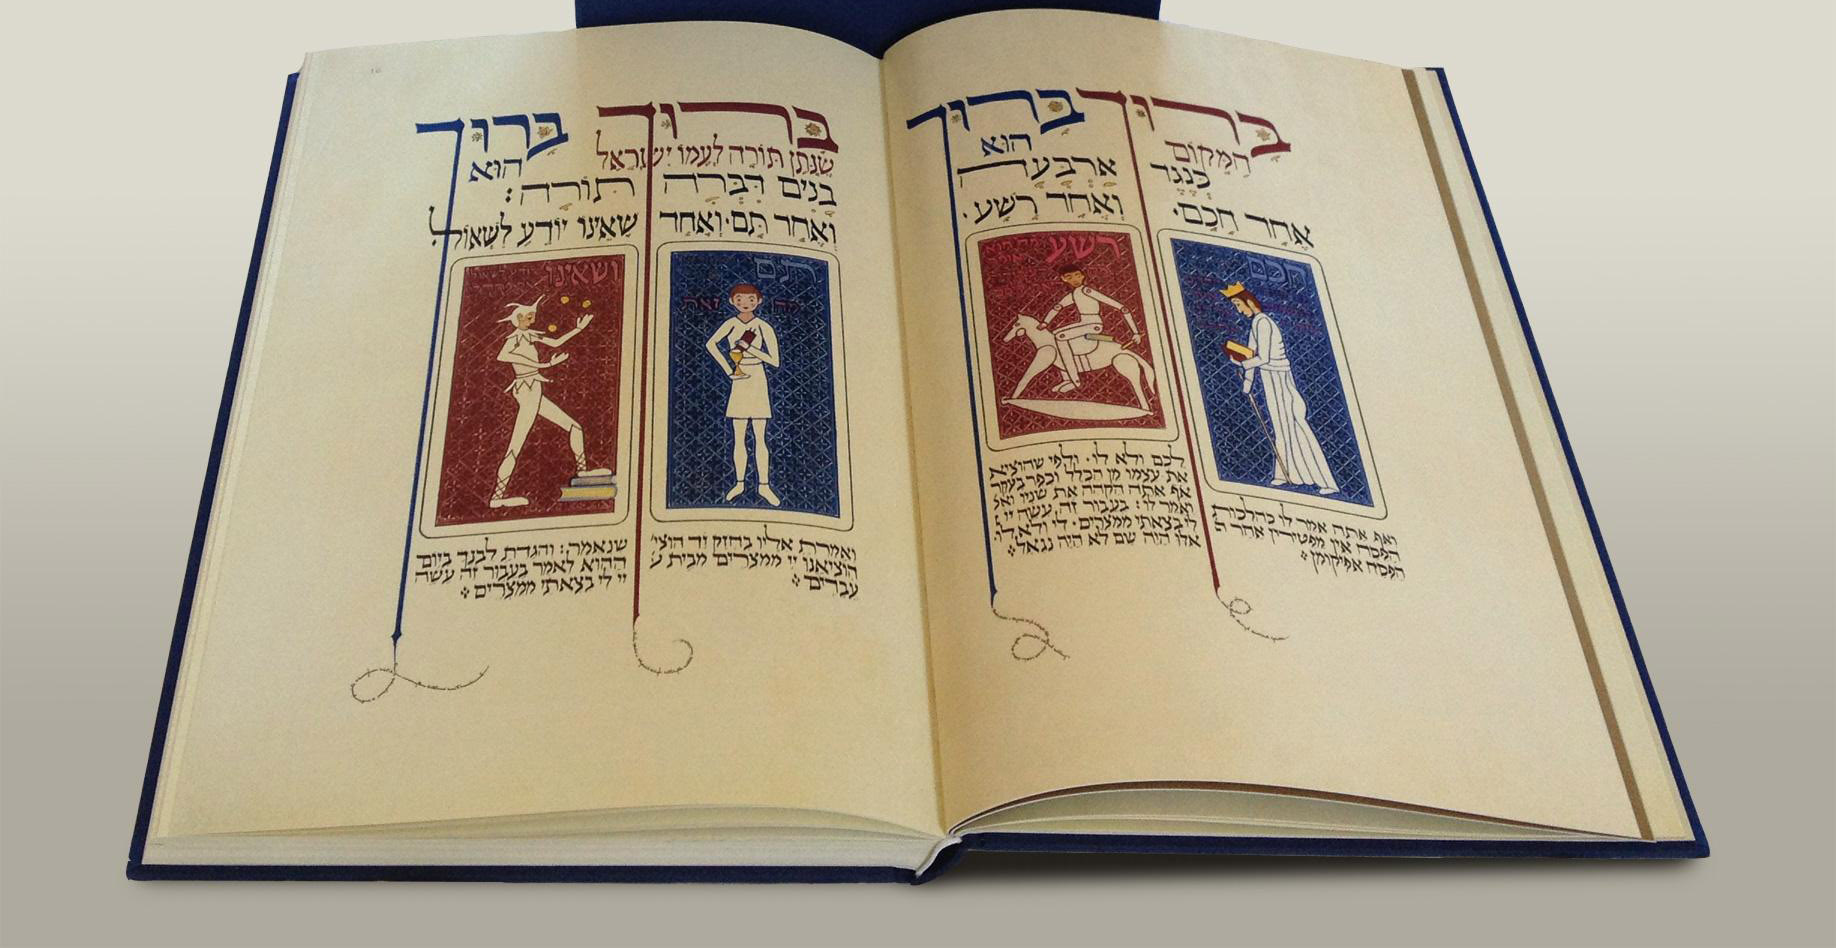 ברוך ברוך
המקום הוא
כנגד ארבעה
אחד חכם. ואחד רשע.
חכם
רשע
ואף אתה אמר לו כהלכות
הפסח אין מפטירין אחר ה
הפסח אפיקומן
לכם ולא לו. ולפי שהוציא
את עצמו מן הכלל וכפר בעקר
אף אתה הקהה את שניו ואמ
ואמר לו: בעבור זה עשה יי
לי בצאתי ממצרים. לי ולא לו.
אלו היה שם לא היה נגאל
בָּרוּךְ בָּרוּךְ
שנתן תורה לעמו ישראל הוא
בנים דברה תורה:
ואחד תם. ואחד שאינו יודע לשאול.
תם
מה זאת
ושאינו
ואמרת אליו בחזק יד הוצי
הוציאנו יי ממצרים מבית ע
עבדים
שנאמר: והגדת לבנך ביום
ההוא לאמר בעבור זה עשה
יי לי בצאתי ממצרים
16